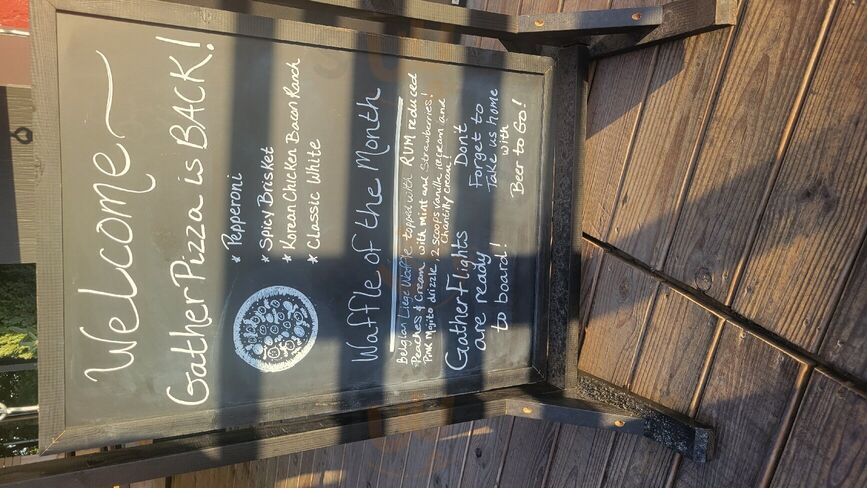 Welcome~
Gather Pizza is BACK!
* Pepperoni
* Spicy Brisket
* Korean Chicken Bacon Ranch
* Classic White
Waffle of the Month
Belgian Liege Waffle topped with RUM reduced
Peaches & Cream with Mint and Strawberries!
Pink Mojito drizzle, 2 scoops vanilla ice cream and
Chantilly cream!
Gather Flights
are ready
to board!
Don't
Forget to
Take us home
with
Beer to Go!